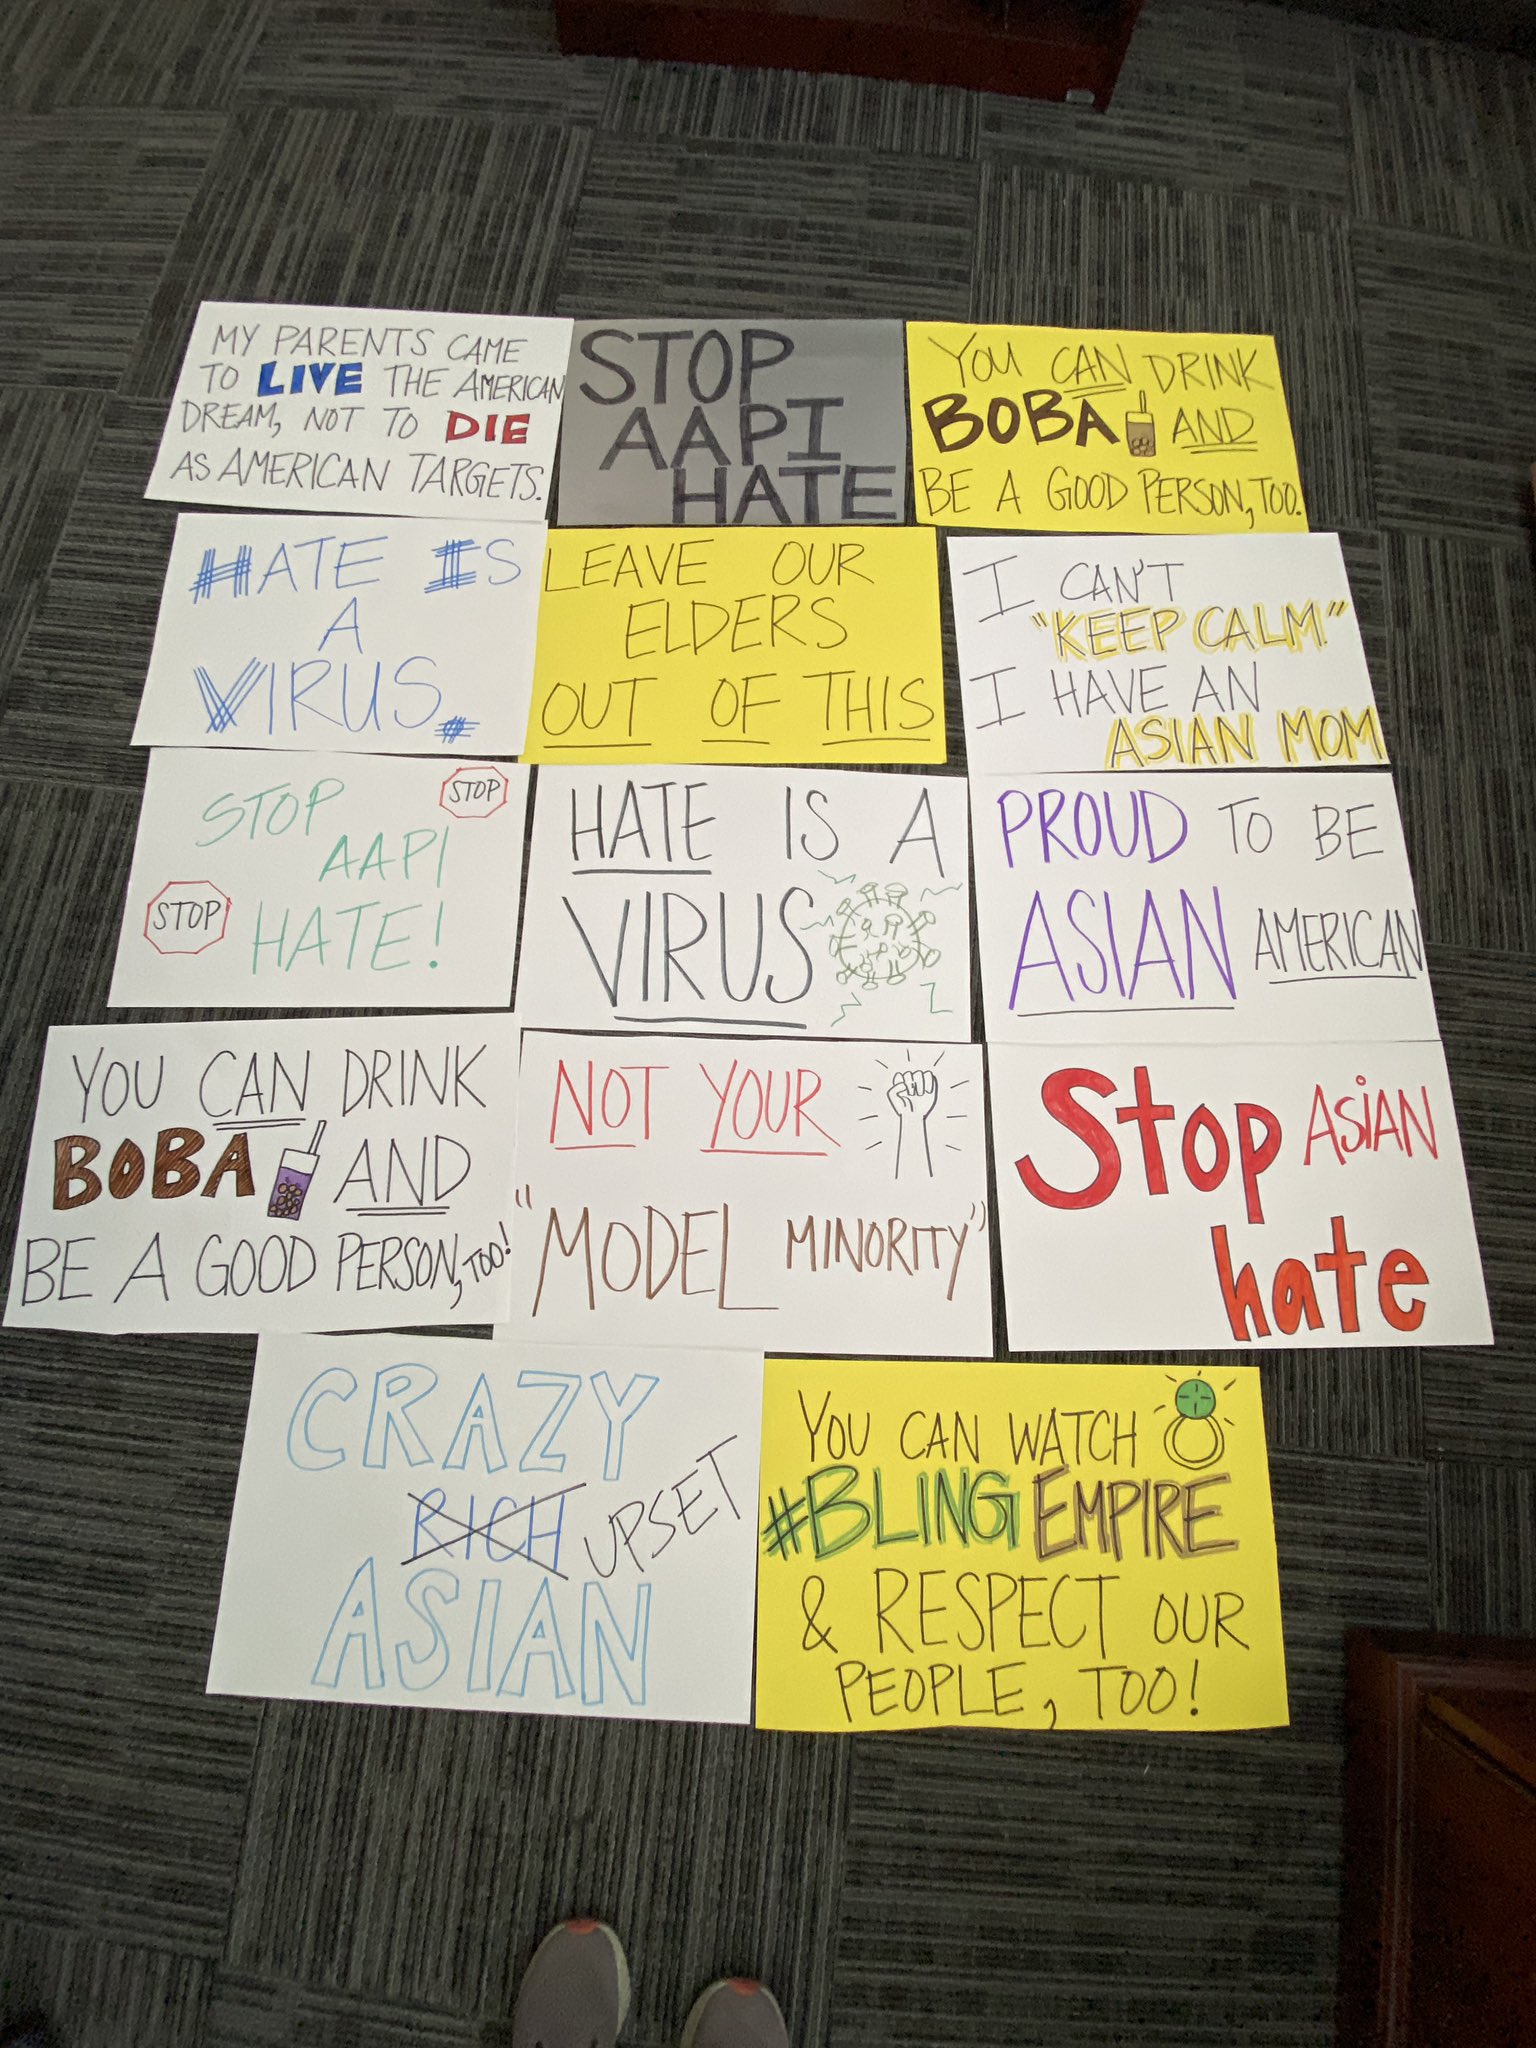 MY PARENTS CAME
TO LIVE THE AMERICAN
DREAM, NOT TO DIE
AS AMERICAN TARGETS.
STOP
AAPI
HATE
YOU CAN DRINK
BOBA AND
BE A GOOD PERSON, TOO.
HATE IS
A
VIRUS.
LEAVE OUR
ELDERS
OUT OF THIS
I CAN'T
"KEEP CALM."
I HAVE AN
ASIAN MOM
STOP
STOP
AAPI
STOP
HATE!
HATE IS A
VIRUS
PROUD TO BE
ASIAN AMERICAN
YOU CAN DRINK
BOBA AND
BE A GOOD PERSON, TOO!
NOT YOUR
"MODEL MINORITY"
Stop ASiAN
hate
CRAZY
RICH UPSET
ASIAN
YOU CAN WATCH
#BLING EMPIRE
& RESPECT OUR
PEOPLE, TOO!